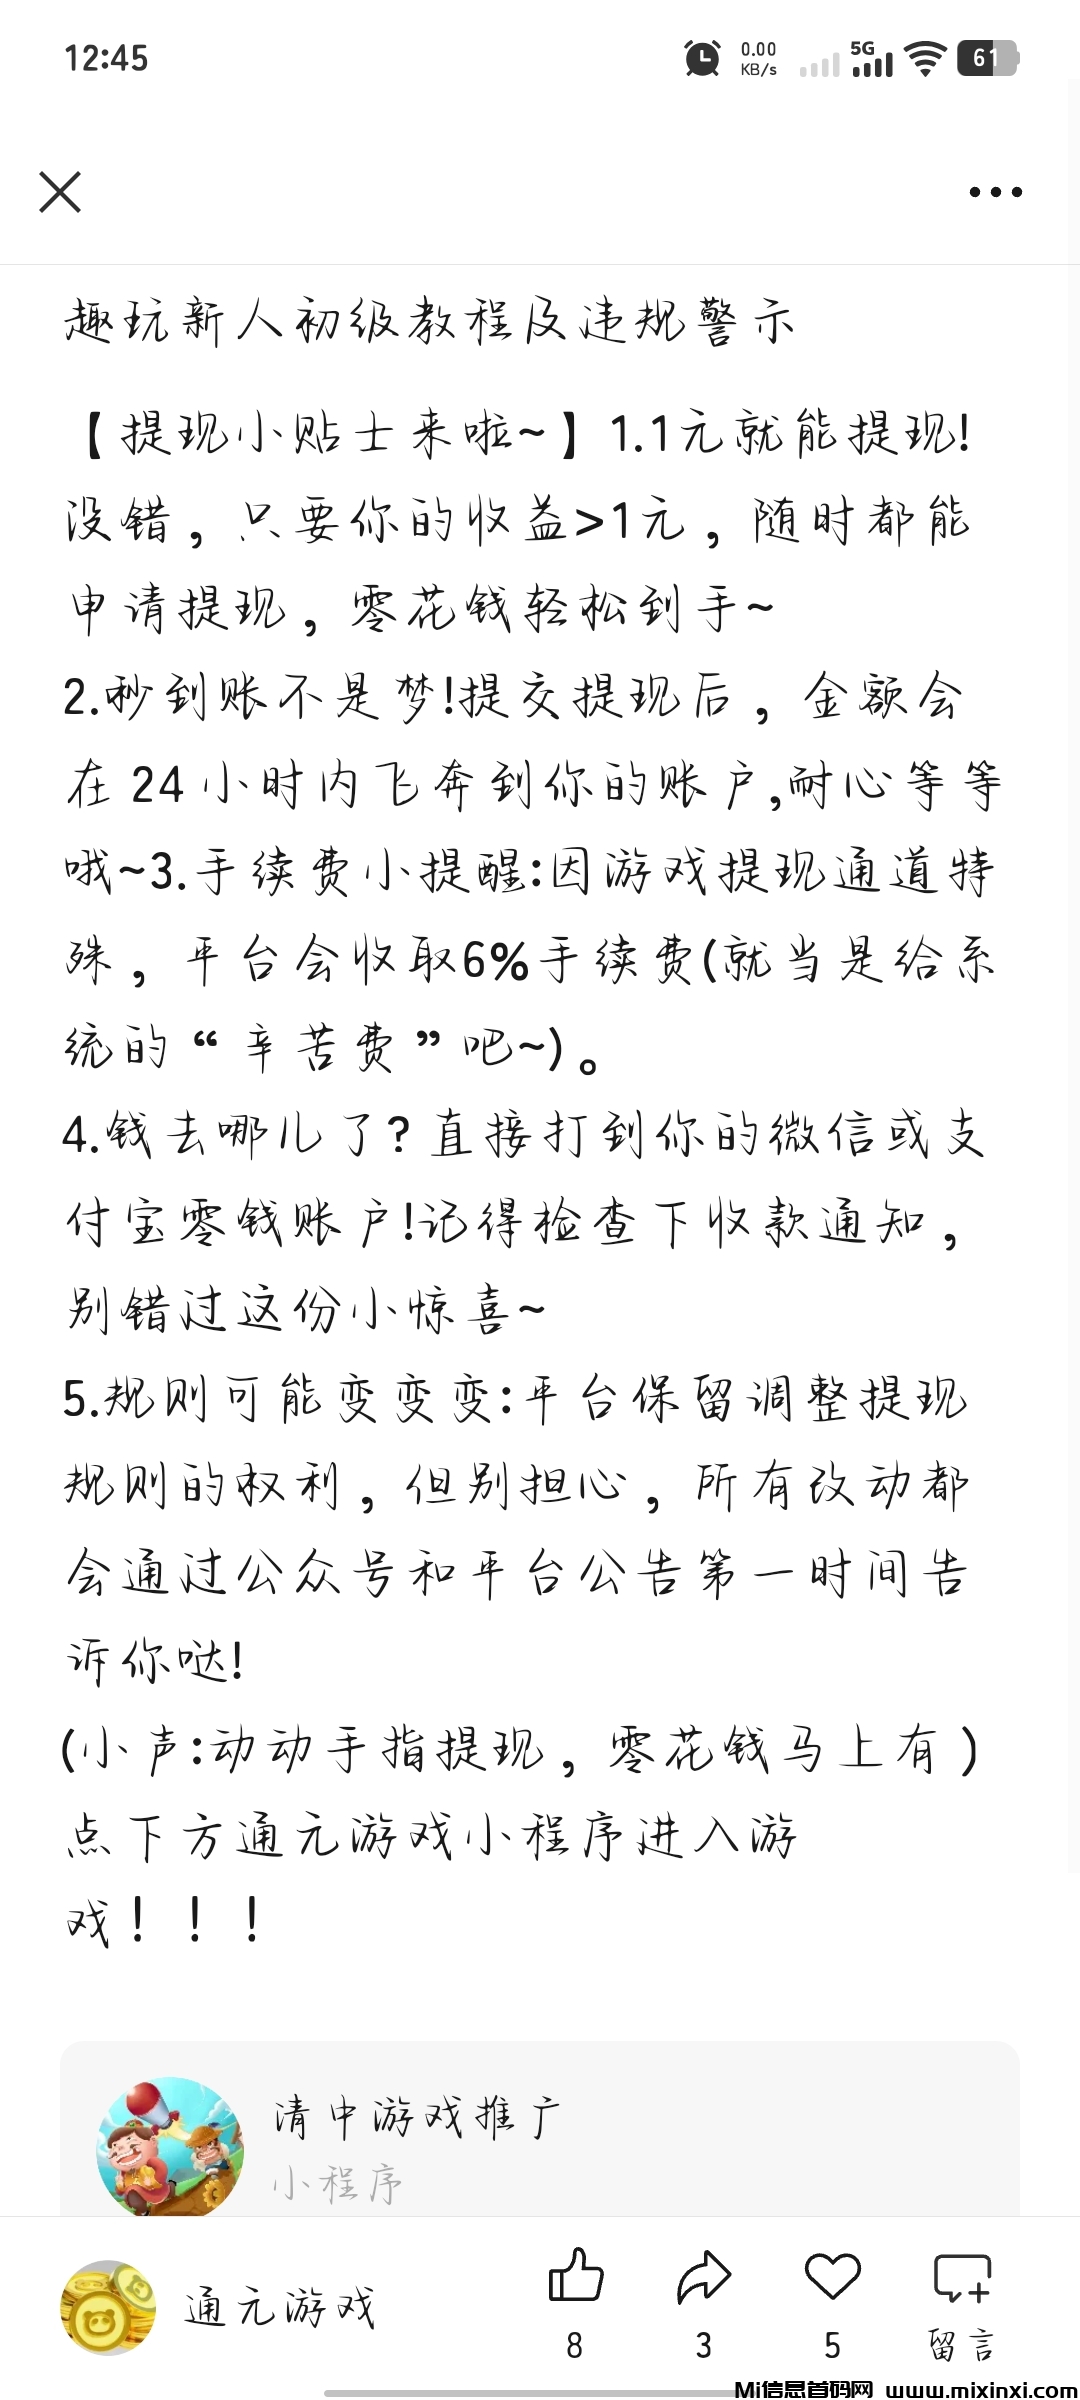 12:45
0.00
KB/s
5G
61
趣玩新人初级教程及违规警示
【提现小贴士来啦~】1.1元就能提现!
没错，只要你的收益>1元，随时都能
申请提现，零花钱轻松到手~
2.秒到账不是梦!提交提现后，金额会
在 24 小时内飞奔到你的账户,耐心等等
哦~3.手续费小提醒:因游戏提现通道特
殊，平台会收取6%手续费(就当是给系
统的“辛苦费”吧~)。
4.钱去哪儿了? 直接打到你的微信或支
付宝零钱账户!记得检查下收款通知，
别错过这份小惊喜~
5.规则可能变变变:平台保留调整提现
规则的权利，但别担心，所有改动都
会通过公众号和平台公告第一时间告
诉你哒!
(小声:动动手指提现，零花钱马上有)
点下方通元游戏小程序进入游
戏！！！
清中游戏推广
小程序
通元游戏
8
3
5
留言
Mi信息首码网 www.mixinxi.com